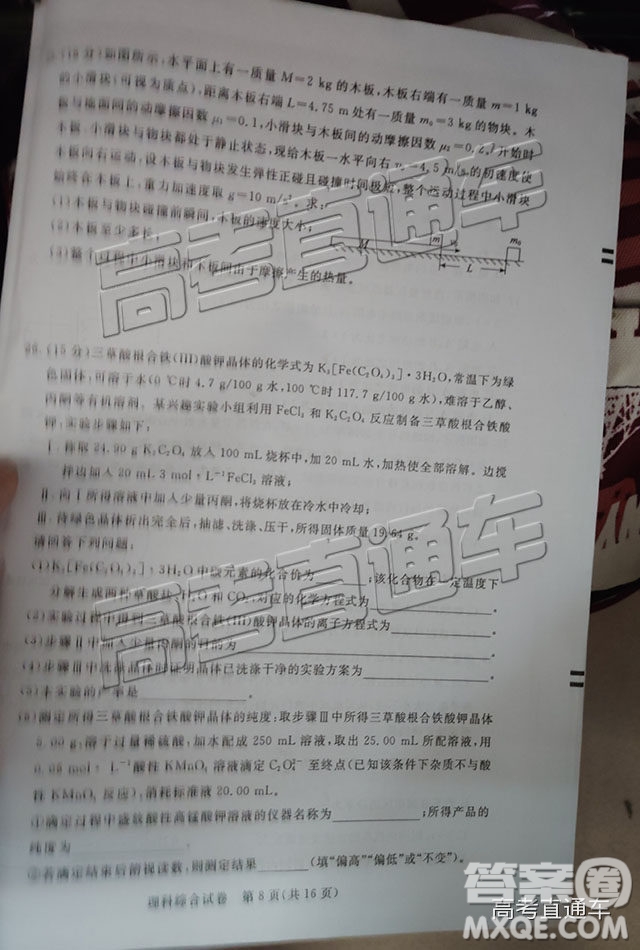 (15分)如图所示,水平面上有一质量M=2 kg的木板,木板右端有一质量m=1 kg
的小滑块(可视为质点),距离木板右端L=4.75 m处有一质量m₀=3 kg的物块。木
板与地面间的动摩擦因数μ₁=0.1,小滑块与木板间的动摩擦因数μ₂=0.2,开始时
木板、小滑块与物块都处于静止状态,现给木板一水平向右v₀=4.5 m/s的初速度使
木板向右运动,设木板与物块发生弹性正碰且碰撞时间极短,整个运动过程中小滑块
始终在木板上,重力加速度取g=10 m/s²。求:
(1)木板与物块碰撞前瞬间,木板的速度大小;
(2)木板至少多长;
(3)整个过程中小滑块和木板间由于摩擦产生的热量。
M m v₀ m₀
L
26.(15分)三草酸根合铁(III)酸钾晶体的化学式为K₃[Fe(C₂O₄)₃]·3H₂O,常温下为绿
色固体,可溶于水(0 ℃时4.7 g/100 g水,100 ℃时117.7 g/100 g水),难溶于乙醇、
丙酮等有机溶剂。某兴趣实验小组利用FeCl₃和K₂C₂O₄反应制备三草酸根合铁酸
钾,实验步骤如下:
Ⅰ.称取24.90 g K₂C₂O₄放入100 mL烧杯中,加20 mL水,加热使全部溶解。边搅
拌边加入20 mL 3 mol·L⁻¹FeCl₃溶液;
Ⅱ.向Ⅰ所得溶液中加入少量丙酮,将烧杯放在冷水中冷却;
Ⅲ.待绿色晶体析出完全后,抽滤、洗涤、压干,所得固体质量19.64 g。
请回答下列问题:
(1)K₃[Fe(C₂O₄)₃]·3H₂O中铁元素的化合价为______;该化合物在一定温度下
分解生成两种草酸盐、H₂O和CO₂,对应的化学方程式为______。
(2)实验过程中得到三草酸根合铁(III)酸钾晶体的离子方程式为______。
(3)步骤Ⅱ中加入少量丙酮的目的为______。
(4)步骤Ⅲ中洗涤晶体时证明晶体已洗涤干净的实验方案为______。
(5)本实验的产率是______。
(6)测定所得三草酸根合铁酸钾晶体的纯度:取步骤Ⅲ中所得三草酸根合铁酸钾晶体
5.00 g,溶于过量稀硫酸,加水配成250 mL溶液,取出25.00 mL所配溶液,用
mol·L⁻¹酸性KMnO₄溶液滴定C₂O₄²⁻至终点(已知该条件下杂质不与酸
性KMnO₄反应),消耗标准液20.00 mL。
①滴定过程中盛放酸性高锰酸钾溶液的仪器名称为______;所得产品的
纯度为______。
②若滴定结束后俯视读数,则测定结果______(填“偏高”“偏低”或“不变”)。
理科综合试卷 第8页(共16页)
高考直通车
高考直通车
高考直通车
答案卷
高考直通车
MXQE.COM